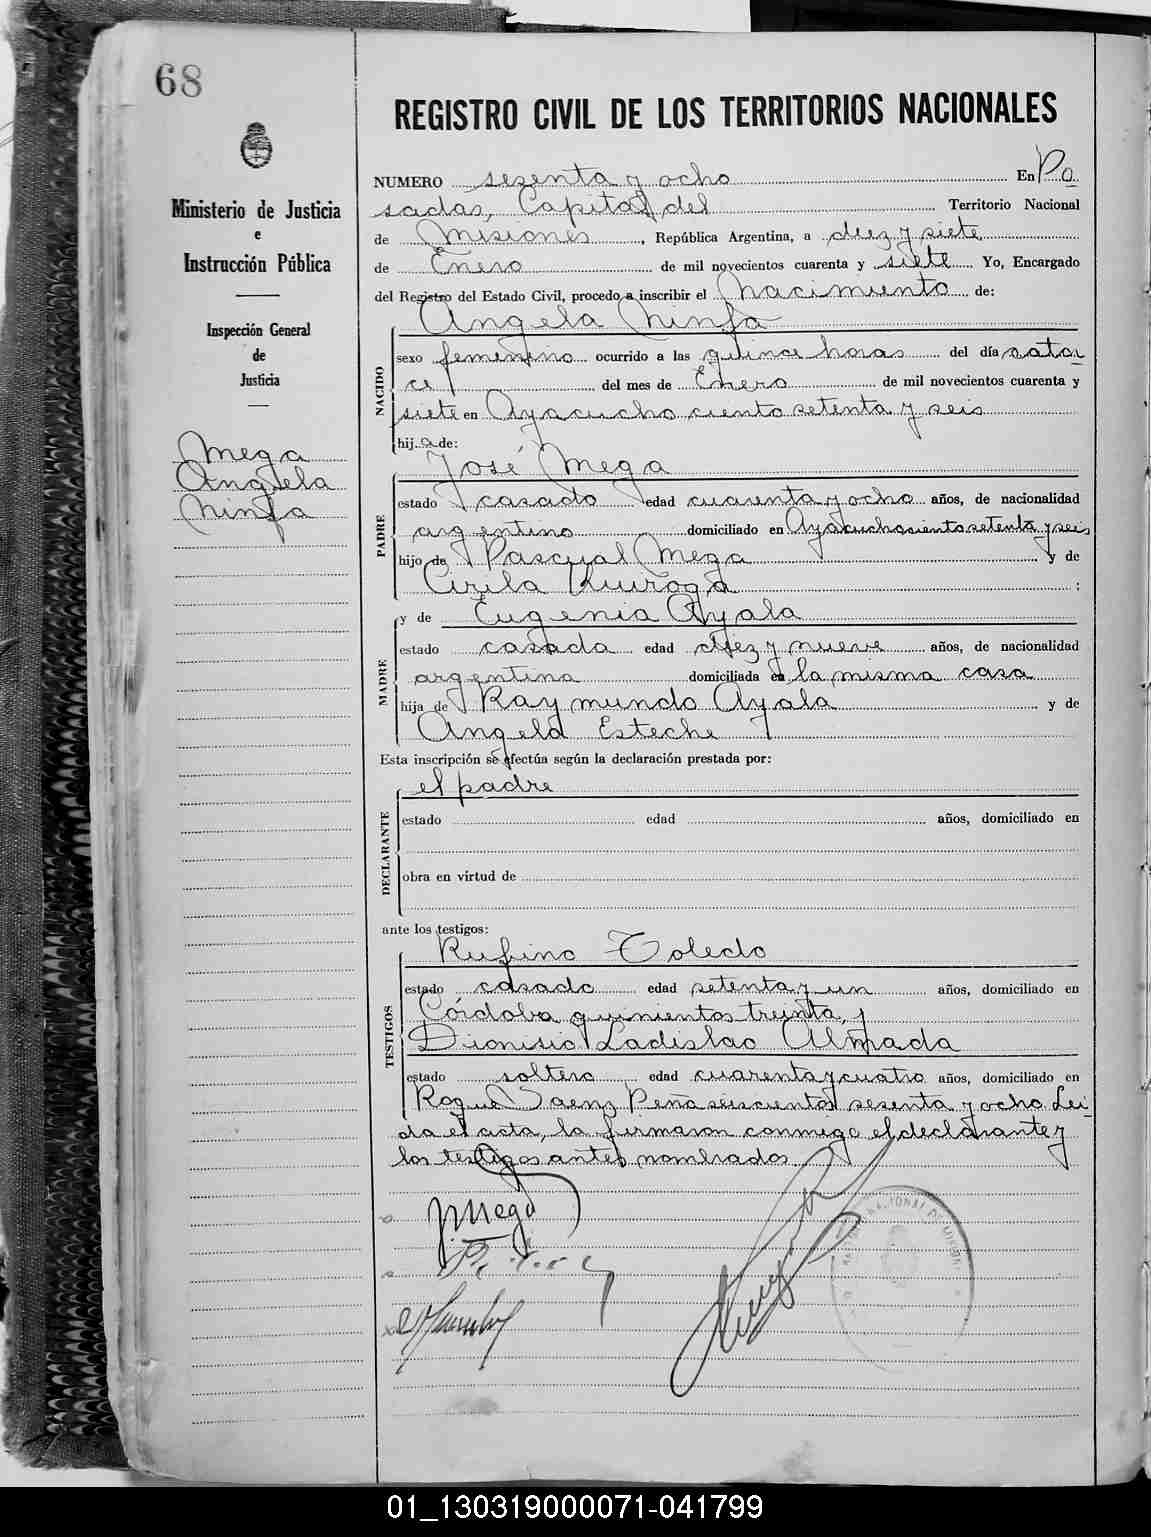 68
REGISTRO CIVIL DE LOS TERRITORIOS NACIONALES
Ministerio de Justicia
e
Instrucción Pública
Inspección General
de
Justicia
Mega
Angela
Ninfa
NUMERO sesenta y ocho En Po
sadas, Capital del Territorio Nacional
de Misiones, República Argentina, a diez y siete
de Enero de mil novecientos cuarenta y siete Yo, Encargado
del Registro del Estado Civil, procedo a inscribir el nacimiento de:
NACIDO
Angela Ninfa
sexo femenino ocurrido a las quince horas del día cator
ce del mes de Enero de mil novecientos cuarenta y
siete en Ayacucho ciento setenta y seis
hija de:
PADRE
José Mega
estado casado edad cuarenta y ocho años, de nacionalidad
argentino domiciliado en Ayacucho ciento setenta y seis
hijo de Pascual Mega y de
Cirila Quiroga :
MADRE
y de Eugenia Ayala
estado casada edad diez y nueve años, de nacionalidad
argentina domiciliada en la misma casa
hija de Raymundo Ayala y de
Angela Esteche
Esta inscripción se efectúa según la declaración prestada por:
DECLARANTE
el padre
estado edad años, domiciliado en
obra en virtud de
ante los testigos:
TESTIGOS
Rufino Toledo
estado casado edad setenta y un años, domiciliado en
Córdoba quinientos treinta, y
Dionisio Ladislao Almada
estado soltero edad cuarenta y cuatro años, domiciliado en
Roque Saenz Peña seiscientos sesenta y ocho Lei
da el acta, la firmaron conmigo el declarante y
los testigos antes nombrados.
J. Mega
01_130319000071-041799